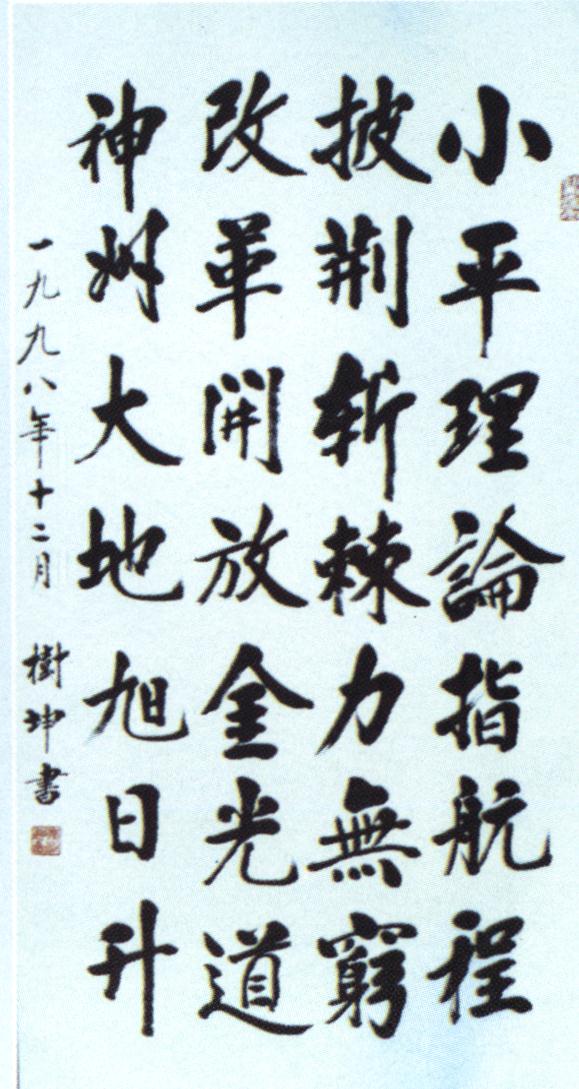 小平理論指航程
披荆斬棘力無窮
改革開放金光道
神州大地旭日升
一九九八年十二月 樹坤書